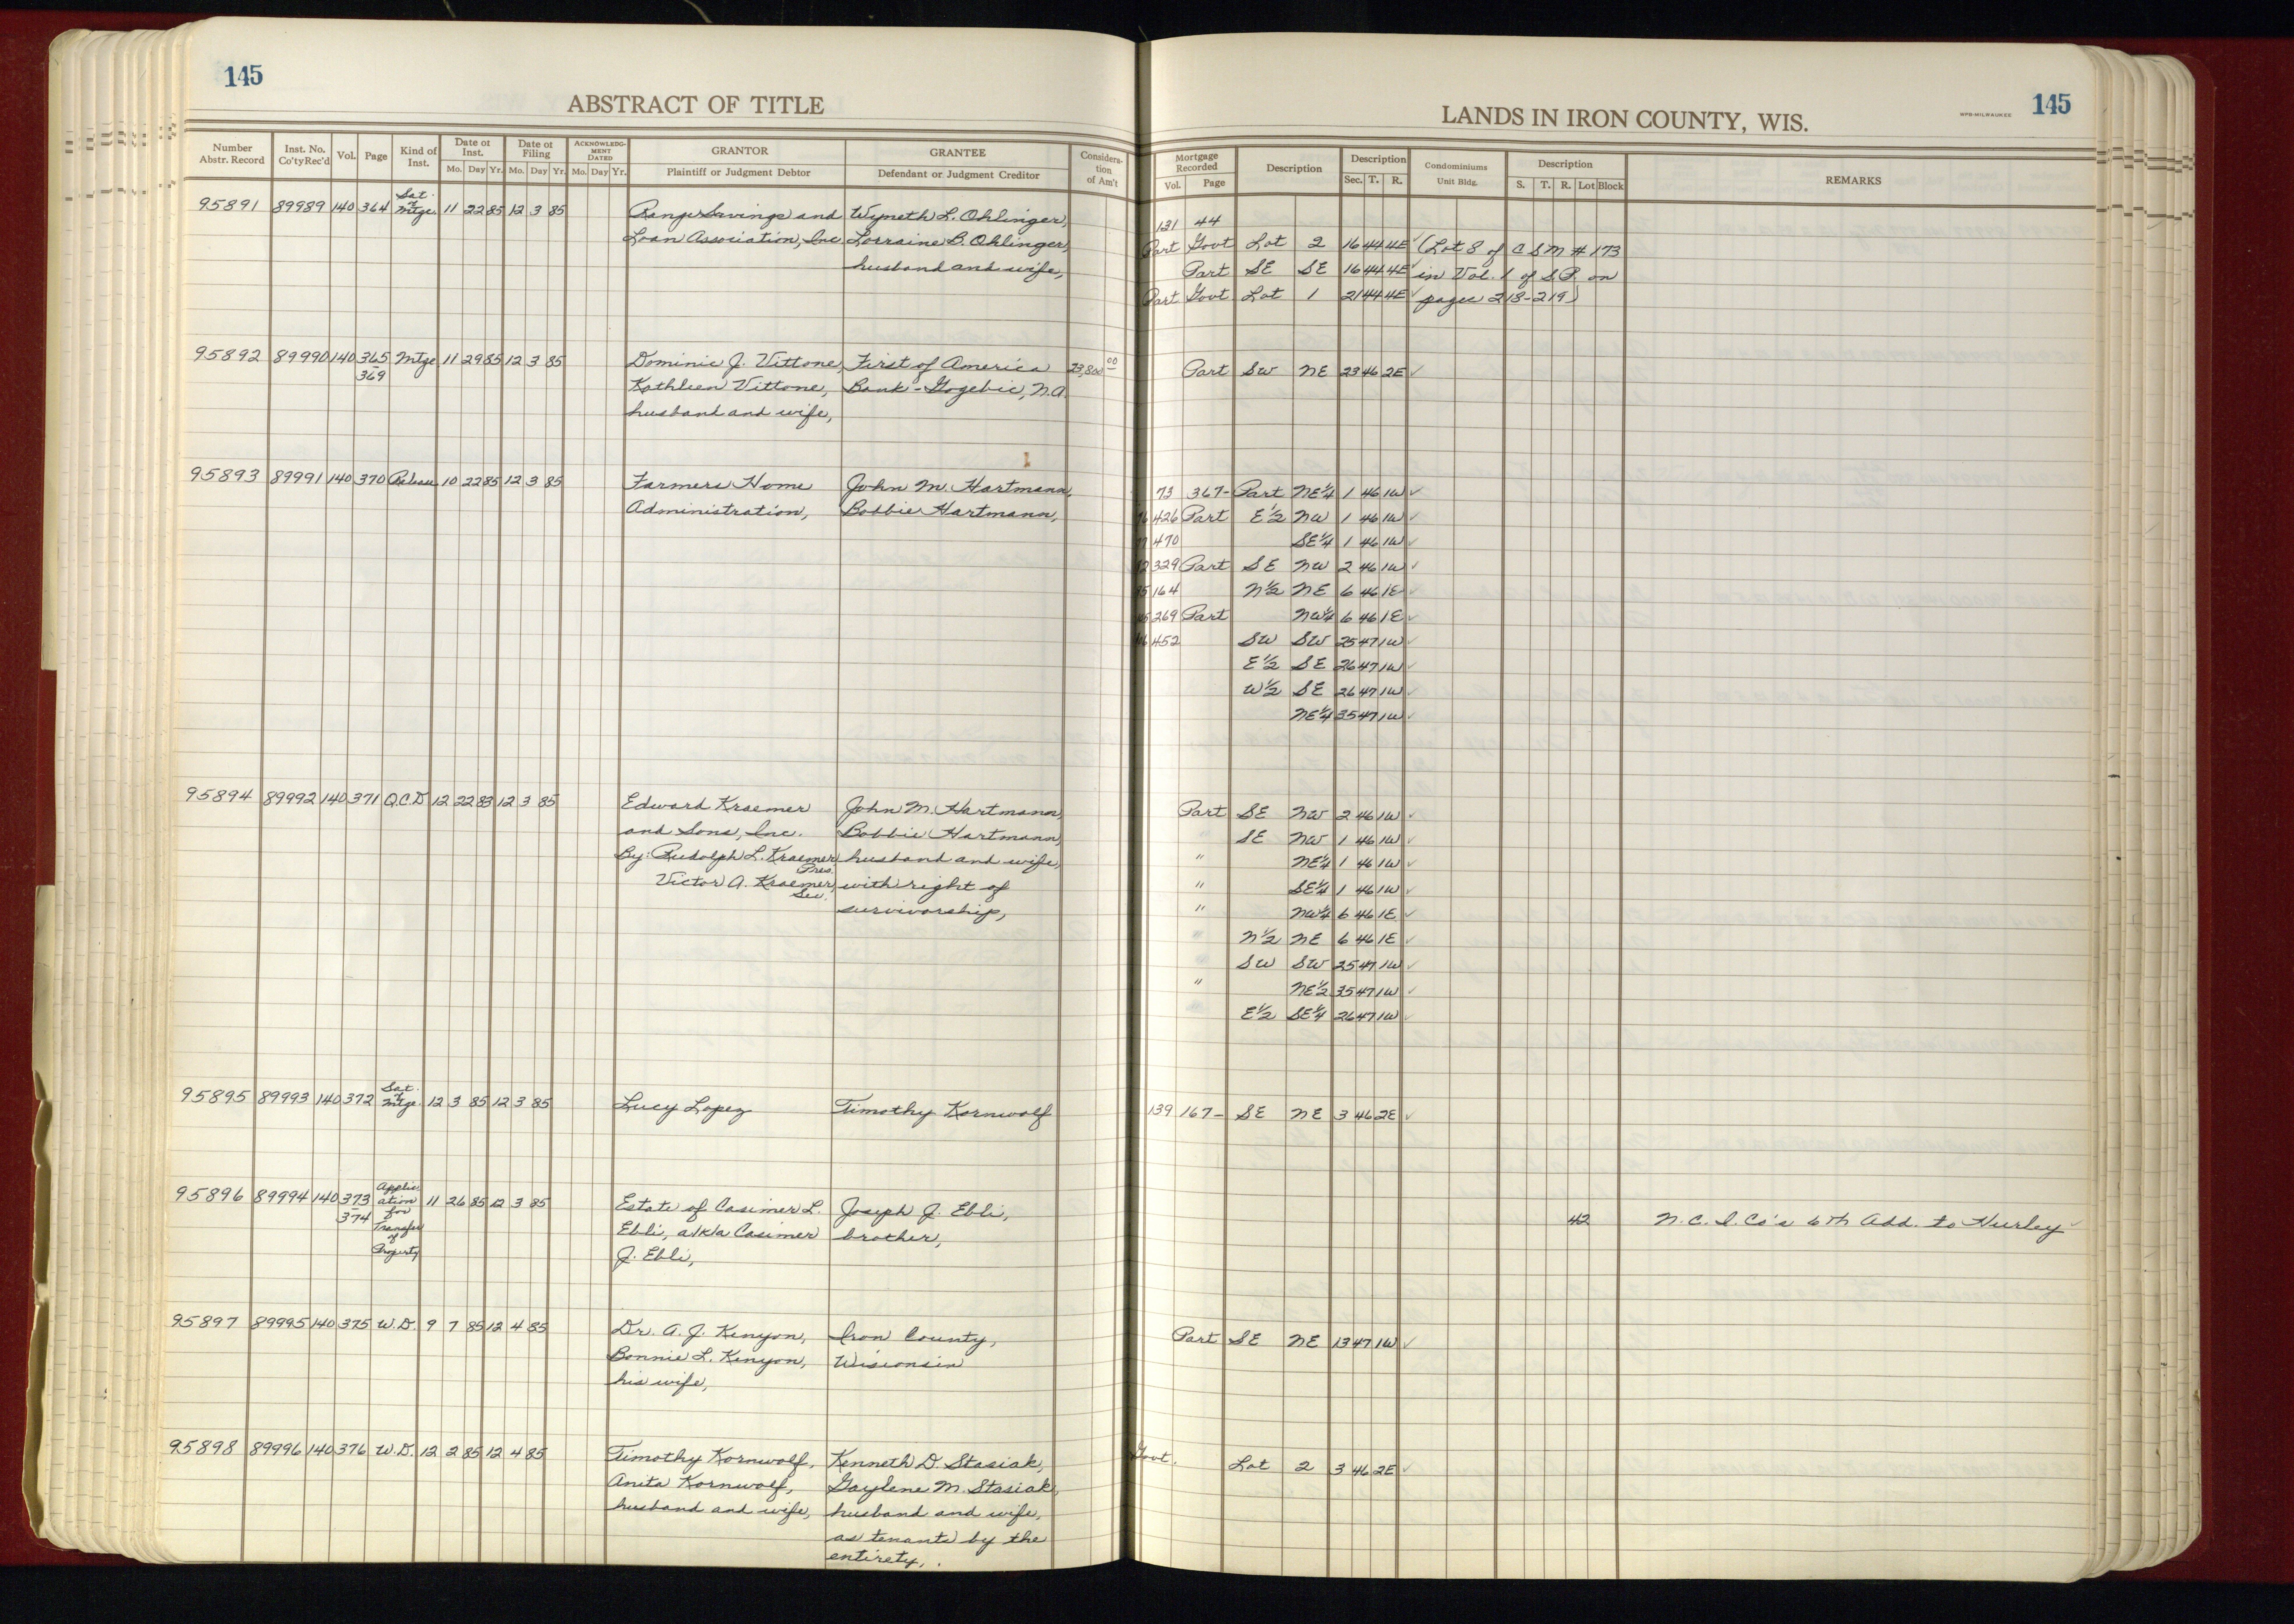 145
ABSTRACT OF TITLE
Number Abstr. Record | Inst. No. Co'ty Rec'd | Vol. | Page | Kind of Inst. | Date of Inst. Mo. Day Yr. | Date of Filing Mo. Day Yr. | ACKNOWLEDGMENT DATED Mo. Day Yr. | GRANTOR Plaintiff or Judgment Debtor | GRANTEE Defendant or Judgment Creditor | Consideration of Am't
95891 89989 140 364 Sat. of Mtge. 11 22 85 12 3 85 Range Savings and Wyneth L. Ohlinger,
Loan Association, Inc. Lorraine B. Ohlinger,
husband and wife,
95892 89990 140 365-369 Mtge. 11 29 85 12 3 85 Dominic J. Vittone, First of America 23,800 00
Kathleen Vittone, Bank-Gogebic, N.A.
husband and wife,
95893 89991 140 370 Release 10 22 85 12 3 85 Farmers Home John M. Hartmann,
Administration, Bobbie Hartmann,
95894 89992 140 371 Q.C.D. 12 22 83 12 3 85 Edward Kraemer John M. Hartmann,
and Sons, Inc. Bobbie Hartmann,
By: Rudolph L. Kraemer, Pres. husband and wife,
Victor A. Kraemer, Sec. with right of
survivorship,
95895 89993 140 372 Sat. of Mtge. 12 3 85 12 3 85 Lucy Lopez Timothy Kornwolf
95896 89994 140 373-374 Application for Transfer of Property 11 26 85 12 3 85 Estate of Casimer L. Joseph J. Ebli,
Ebli, a/k/a Casimer brother,
J. Ebli,
95897 89995 140 375 W.D. 9 7 85 12 4 85 Dr. A. J. Kenyon, Iron County,
Bonnie L. Kenyon, Wisconsin
his wife,
95898 89996 140 376 W.D. 12 2 85 12 4 85 Timothy Kornwolf, Kenneth D. Stasiak,
Anita Kornwolf, Gaylene M. Stasiak,
husband and wife, husband and wife,
as tenants by the
entirety,
145
WPB-MILWAUKEE
LANDS IN IRON COUNTY, WIS.
Mortgage Recorded Vol. Page | Description | Description Sec. T. R. | Condominiums Unit Bldg. | Description S. T. R. Lot Block | REMARKS
131 44
Part Govt Lot 2 16 44 4E ✓ (Lot 8 of C S M # 173
Part SE SE 16 44 4E ✓ in Vol. 1 of S.P. on
Part Govt Lot 1 21 44 4E ✓ pages 218-219)
Part SW NE 23 46 2E ✓
73 367- Part NE¼ 1 46 1W ✓
426 Part E½ NW 1 46 1W ✓
470 SE¼ 1 46 1W ✓
329 Part SE NW 2 46 1W ✓
164 N½ NE 6 46 1E ✓
269 Part NW¼ 6 46 1E ✓
452 SW SW 25 47 1W ✓
E½ SE 26 47 1W ✓
W½ SE 26 47 1W ✓
NE¼ 35 47 1W ✓
Part SE NW 2 46 1W ✓
SE NW 1 46 1W ✓
" NE¼ 1 46 1W ✓
" SE¼ 1 46 1W ✓
" NW¼ 6 46 1E ✓
N½ NE 6 46 1E ✓
SW SW 25 47 1W ✓
" NE½ 35 47 1W ✓
E½ SE¼ 26 47 1W ✓
139 167- SE NE 3 46 2E ✓
42 N.C.I. Co's 6th Add. to Hurley ✓
Part SE NE 13 47 1W ✓
Govt. Lot 2 3 46 2E ✓